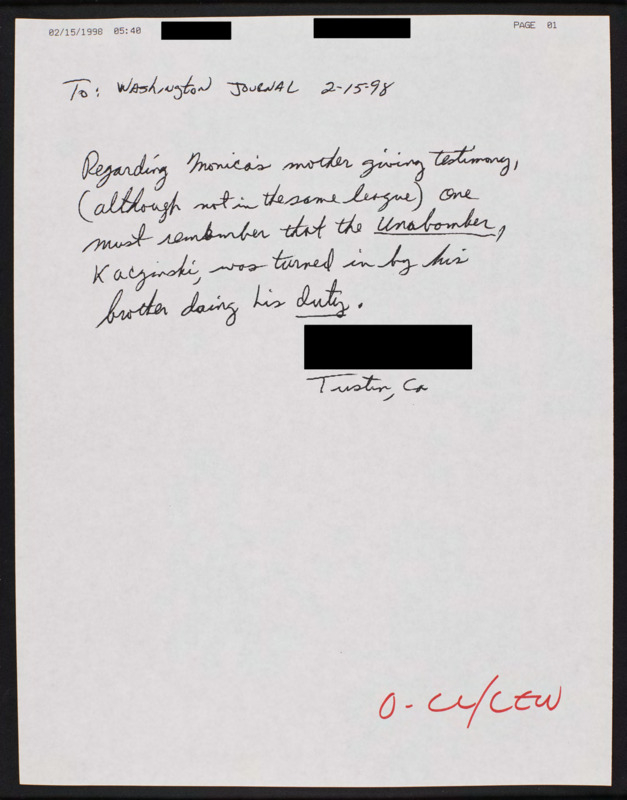 02/15/1998 05:40 PAGE 01
To: Washington Journal 2-15-98
Regarding Monica's mother giving testimony,
(although not in the same league) one
must remember that the Unabomber,
Kaczinski, was turned in by his
brother doing his duty.
Tustin, Ca
O - CL/CEW